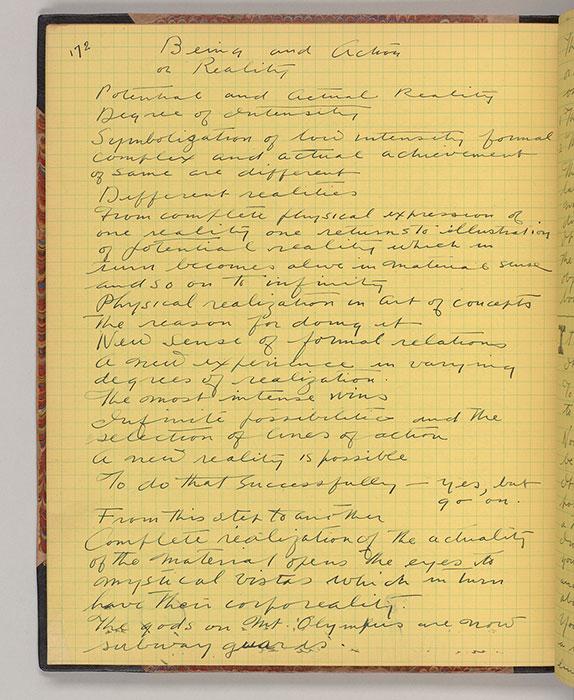 172
Being and Action
or Reality
Potential and actual Reality
Degree of intensity
Symbolization of low intensity formal
complex and actual achievement
of same are different
Different realities
From complete physical expression of
one reality one returns to illustration
of potential reality which in
turn becomes alive in material sense
and so on to infinity
Physical realization in art of concepts
The reason for doing it
New sense of formal relations
A new experience in varying
degrees of realization.
The most intense wins
Infinite possibilities and the
selection of lines of action
A new reality is possible
To do that successfully — yes, but
go on.
From this step to another
Complete realization of the actuality
of the material opens the eyes to
mystical vistas which in turn
have their corporeality.
The gods on Mt. Olympus are now
subway guards.